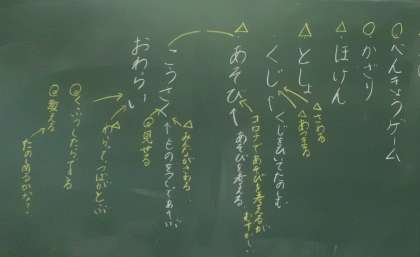 ○べんきょうゲーム
○かざり
△ほけん
△としょ
くじ
くじをひいてたのしむ
△さわる
△あつまる
△
あそび
コロナであそびを考えるが
あそびを考える
こうさく
△みんながさわる
◎見せる
おわらい
△
わらってつばがとぶ
◎くふうしたらできる
◎教える
たのめるかな?